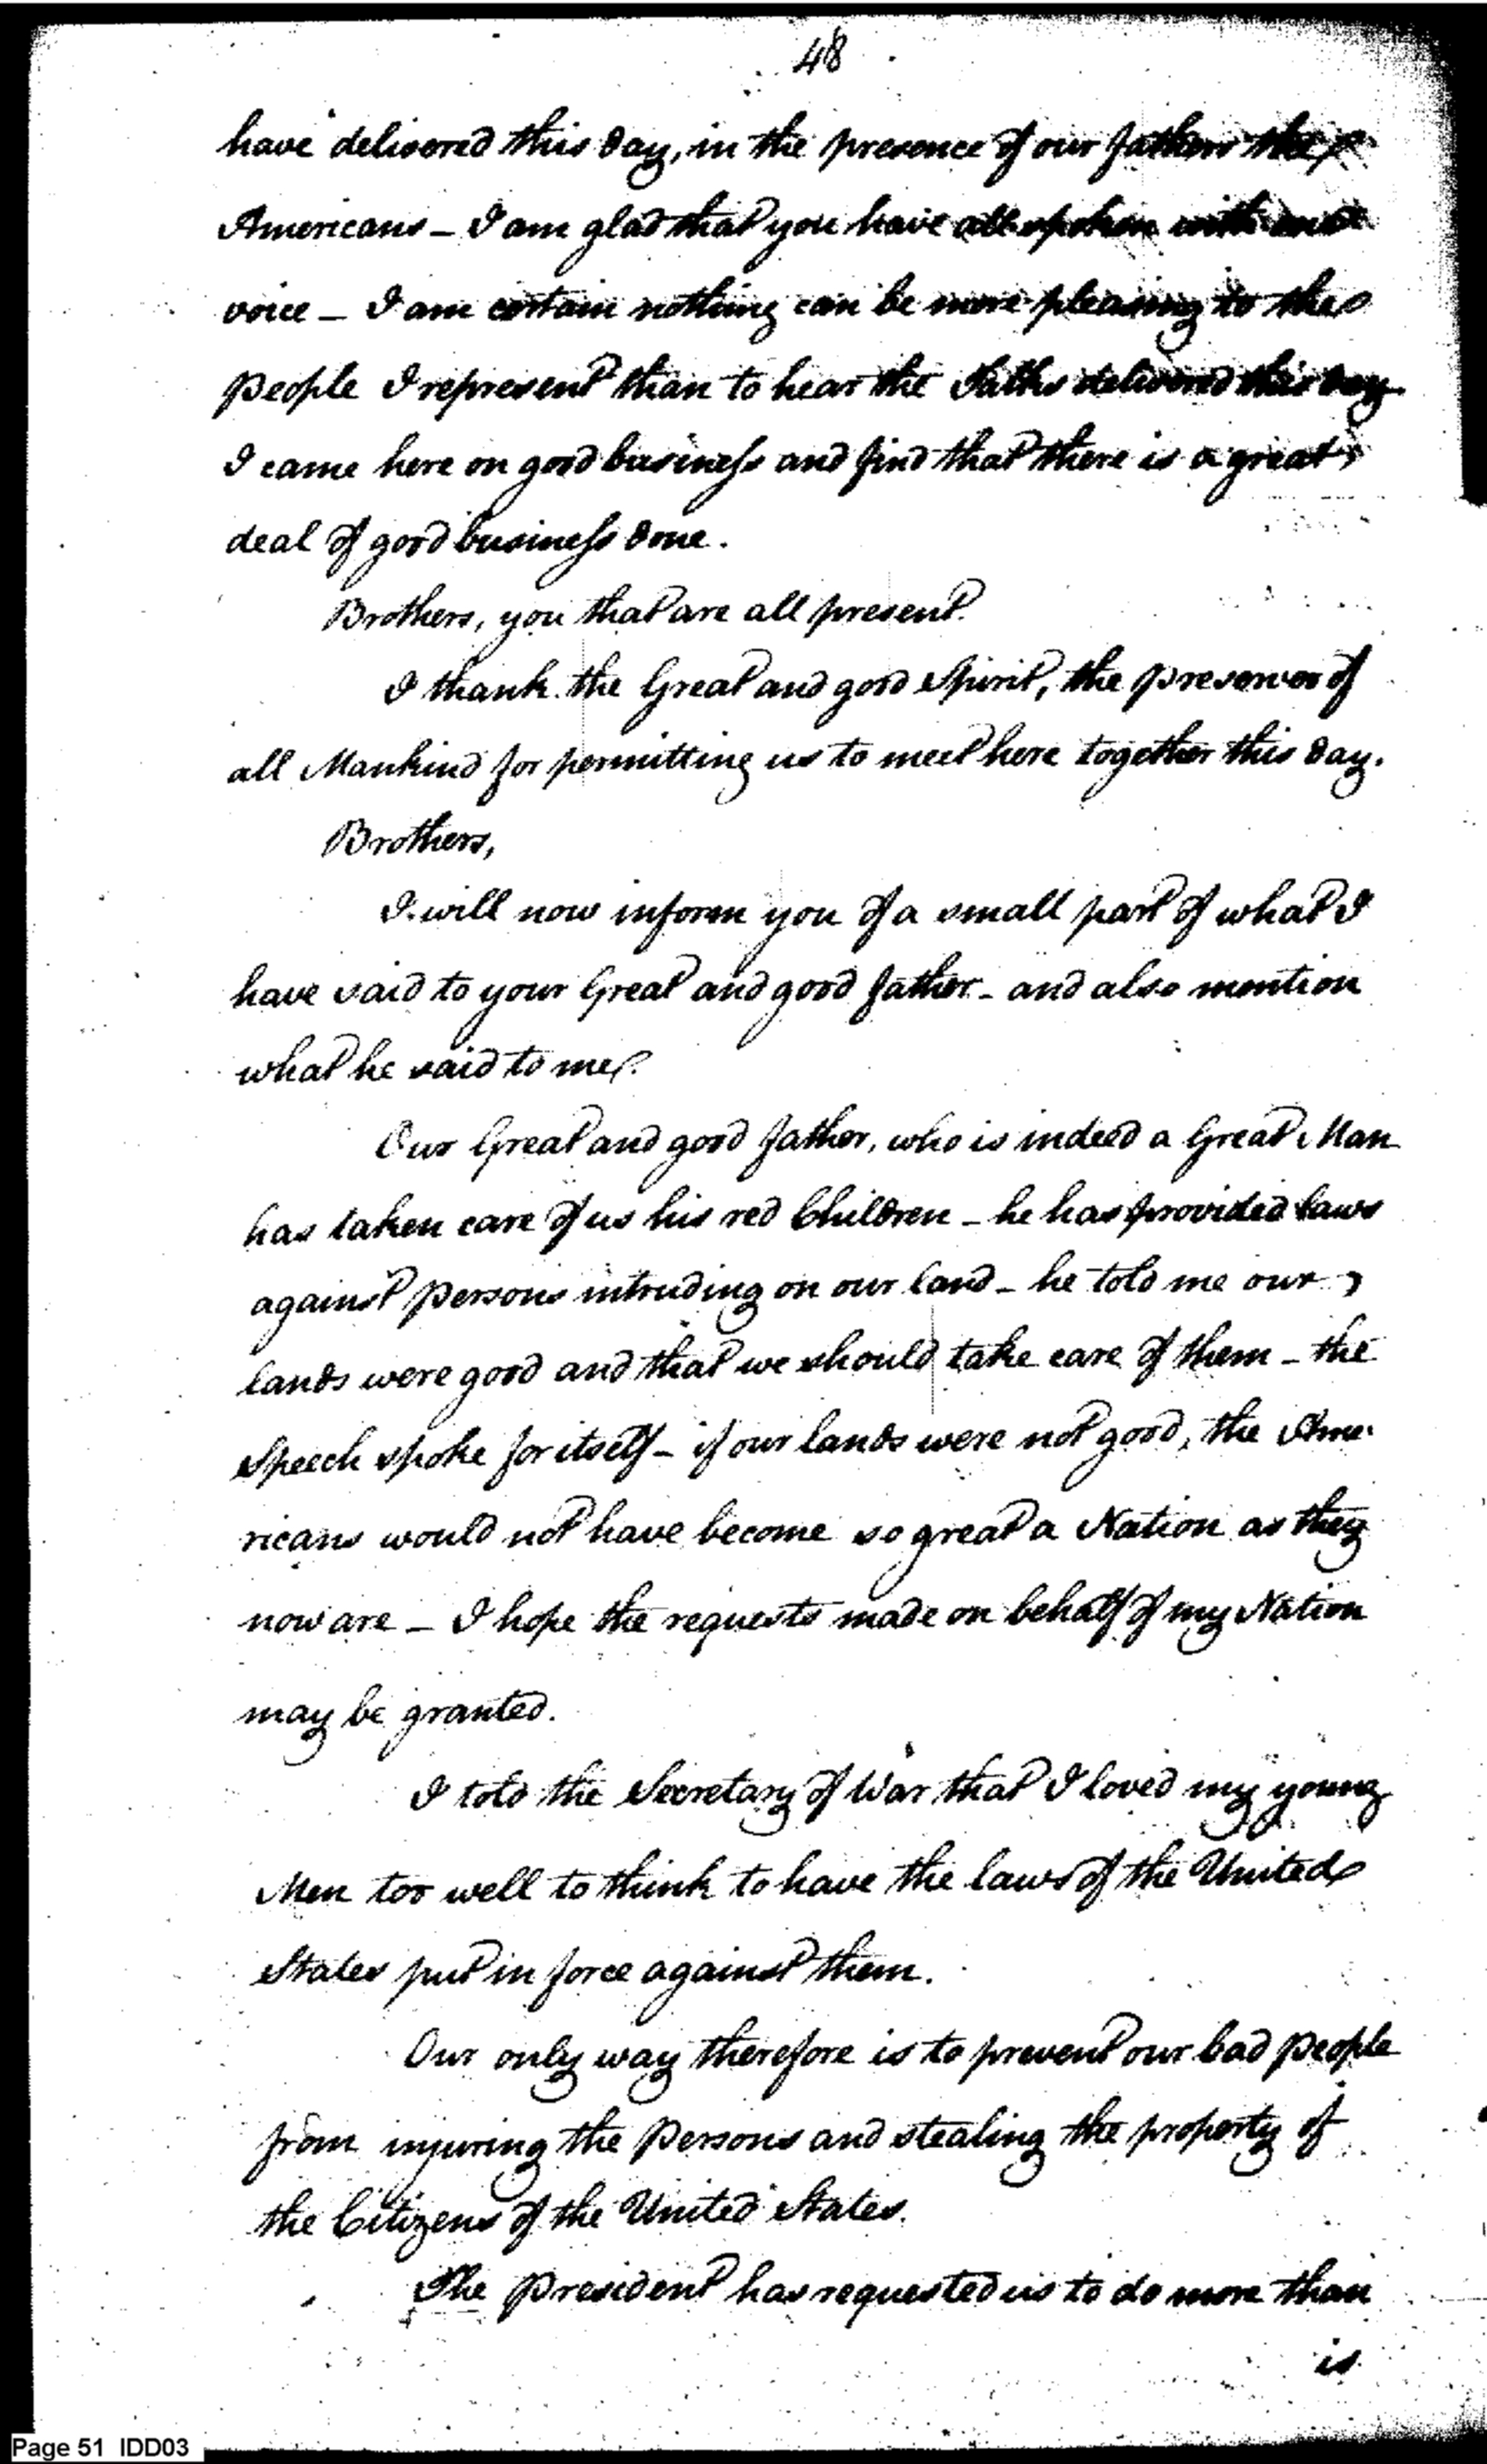 48
have delivered this day, in the presence of our fathers the
Americans - I am glad that you have all spoken with one
voice - I am certain nothing can be more pleasing to the
People I represent than to hear the Talks delivered this day
I came here on good business and find that there is a great
deal of good business done.
Brothers, you that are all present.
I thank the Great and good Spirit, the preserver of
all Mankind for permitting us to meet here together this day.
Brothers,
I will now inform you of a small part of what I
have said to your Great and good father - and also mention
what he said to me.
Our Great and good father, who is indeed a Great Man
has taken care of us his red Children - he has provided laws
against Persons intruding on our land - he told me our
lands were good and that we should take care of them - the
Speech spoke for itself - if our lands were not good, the Ame-
ricans would not have become so great a Nation as they
now are - I hope the requests made on behalf of my Nation
may be granted.
I told the Secretary of War that I loved my young
Men too well to think to have the laws of the United
States put in force against them.
Our only way therefore is to prevent our bad People
from injuring the Persons and stealing the property of
the Citizens of the United States.
The President has requested us to do more than
is
Page 51 IDD03